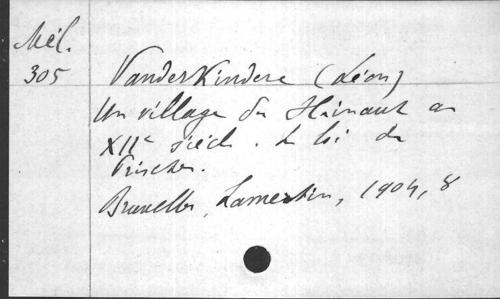 Mél.
305
Vanderkindere (Léon)
Un village du Hainaut au
XIIe siècle. La loi de
Prisches.
Bruxelles, Lamertin, 1904, 8